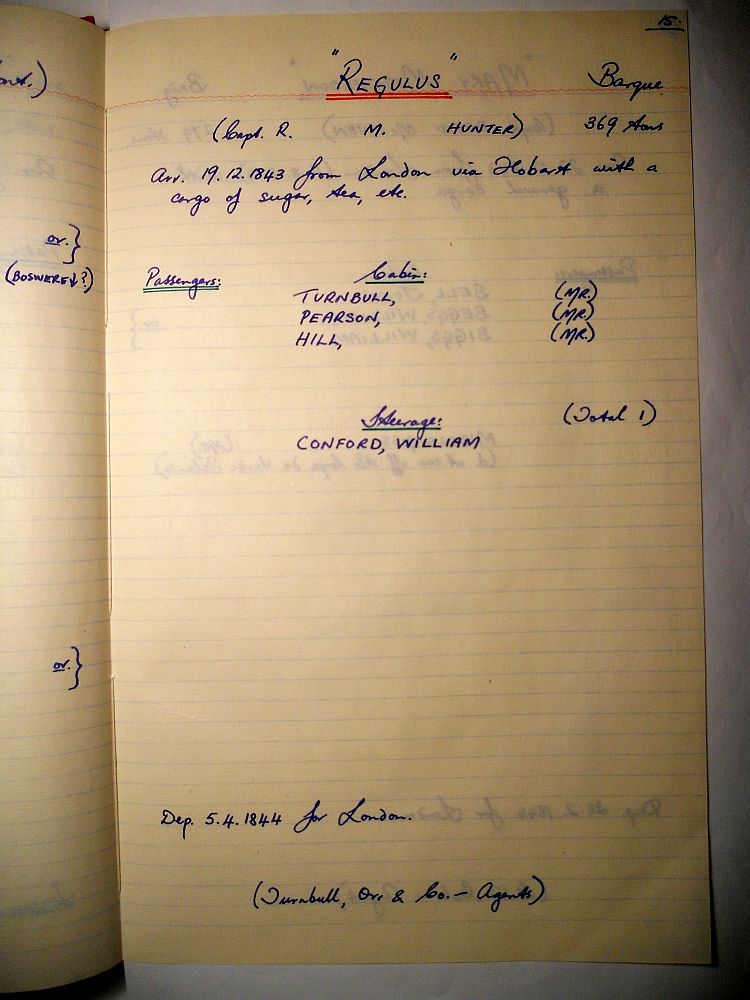 15.
"REGULUS" Barque
(Capt. R. M. HUNTER) 369 tons
Arr. 19.12.1843 from London via Hobart with a
cargo of sugar, tea, etc.
or. }
(BOSWEREL?)
Passengers: Cabin:
TURNBULL, (MR.)
PEARSON, (MR.)
HILL, (MR.)
Steerage: (Total 1)
CONFORD, WILLIAM
or. }
Dep. 5.4.1844 for London.
(Turnbull, Orr & Co. - Agents)